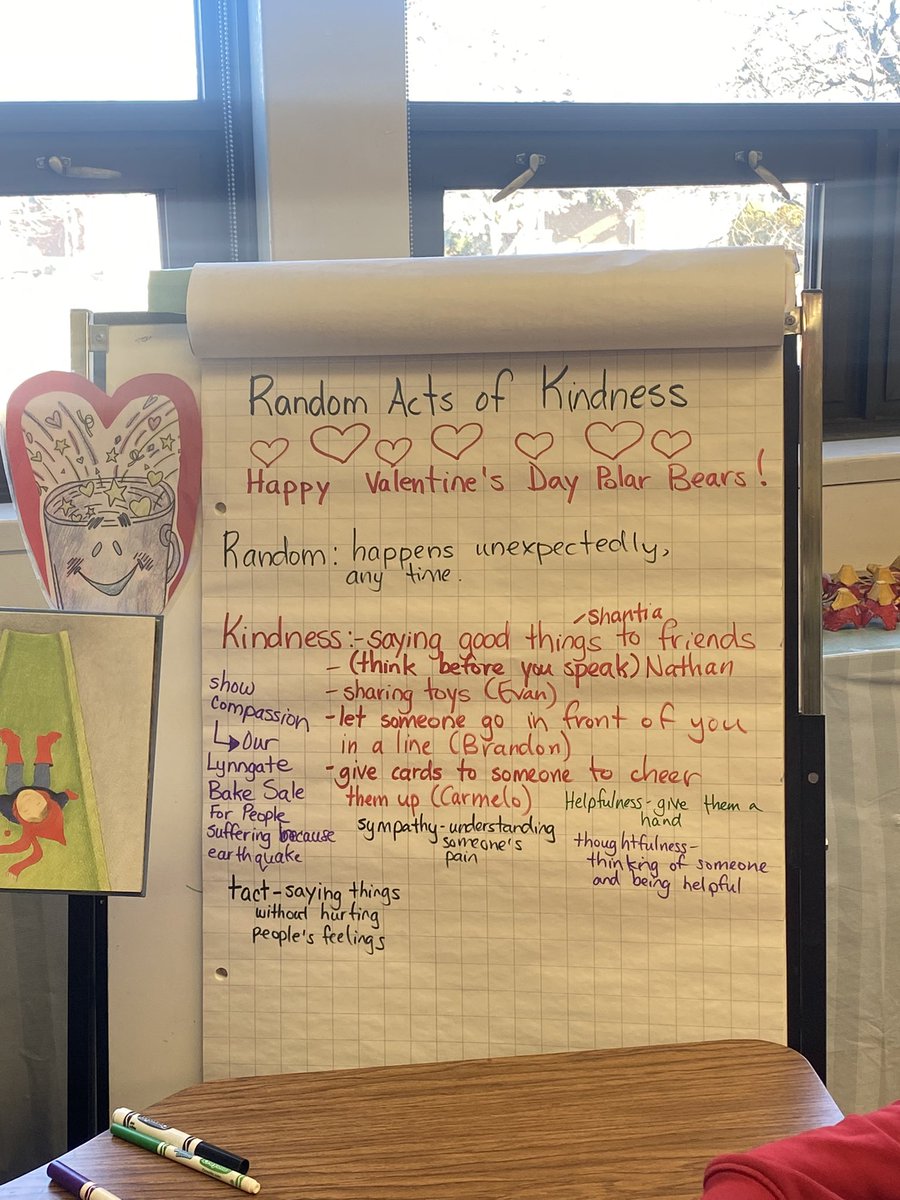 Random Acts of Kindness
Happy Valentine's Day Polar Bears!
Random: happens unexpectedly,
any time.
-Shantia
Kindness:-saying good things to friends
- (think before you speak) Nathan
-sharing toys (Evan)
-let someone go in front of you
in a line (Brandon)
-give cards to someone to cheer
them up (Carmelo)
show
compassion
Our
Lynngate
Bake Sale
For People
suffering because
earthquake
Helpfulness-give them a
hand
sympathy-understanding
someone's
pain
thoughtfulness-
thinking of someone
and being helpful
tact-saying things
without hurting
people's feelings